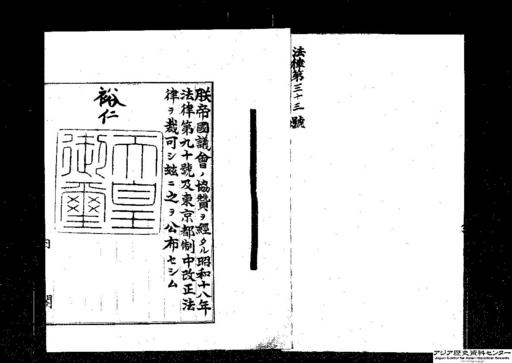 法律第三十三號
朕帝國議會ノ協贊ヲ經タル昭和十八年
法律第九十號及東京都制中改正法
律ヲ裁可シ玆ニ之ヲ公布セシム
裕仁
天皇
御璽
内閣
アジア歴史資料センター
Japan Center for Asian Historical Records